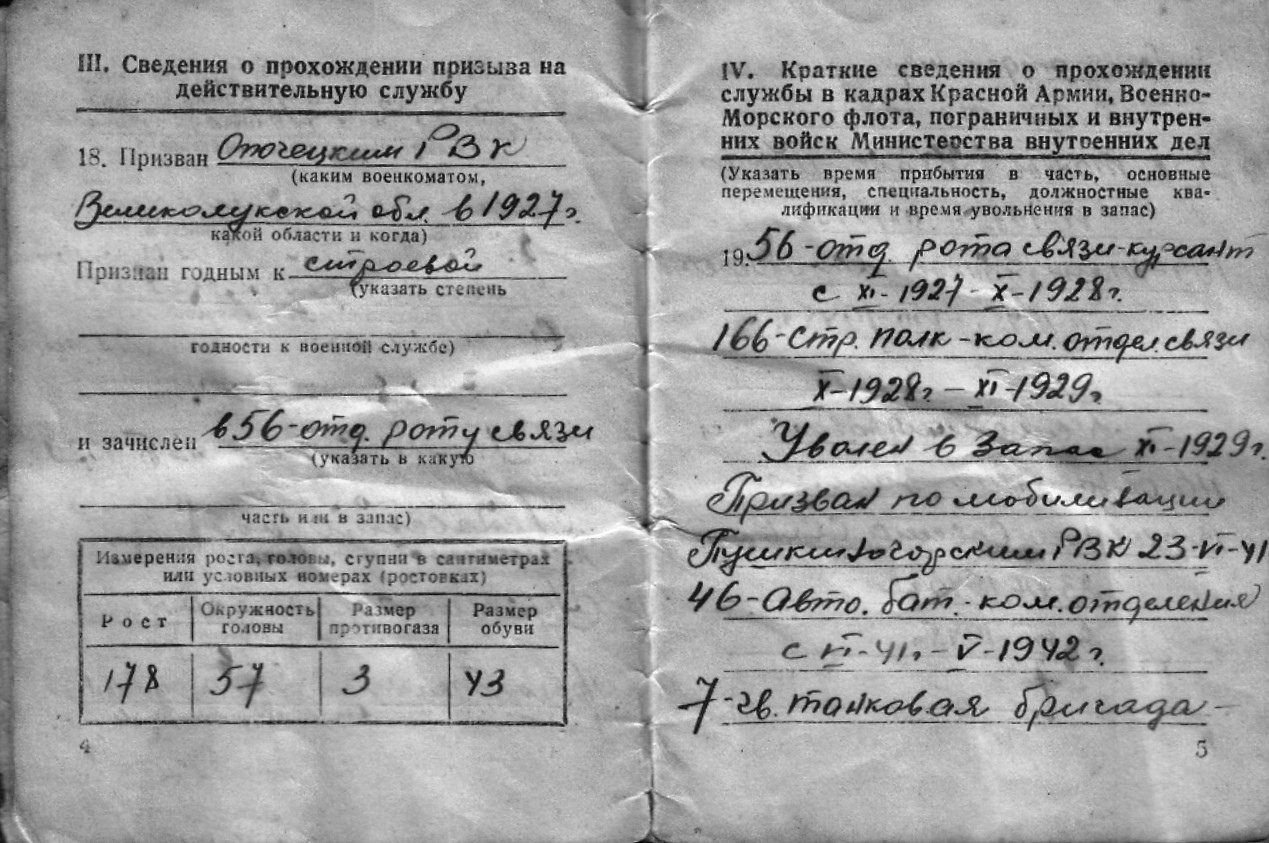 III. Сведения о прохождении призыва на
действительную службу
18. Призван Опочецким РВК
(каким военкоматом,
Великолукской обл. в 1927 г.
какой области и когда)
Признан годным к строевой
(указать степень
годности к военной службе)
и зачислен в 56-отд. роту связи
(указать в какую
часть или в запас)
Измерения роста, головы, ступни в сантиметрах
или условных номерах (ростовках)
Рост
Окружность
головы
Размер
противогаза
Размер
обуви
178 57 3 43
4
IV. Краткие сведения о прохождении
службы в кадрах Красной Армии, Военно-
Морского флота, пограничных и внутрен-
них войск Министерства внутренних дел
(Указать время прибытия в часть, основные
перемещения, специальность, должностные ква-
лификации и время увольнения в запас)
19. 56-отд. рота связи-курсант
с XI-1927-X-1928г.
166-Стр. полк-ком. отдел. связи
X-1928г.-XI-1929г.
Уволен в Запас XI-1929г.
Призван по мобилизации
Пушкиногорским РВК 23-VI-41
46-Авто. бат.-ком. отделения
с VI-41г.-V-1942г.
7-гв. танковая бригада-
5